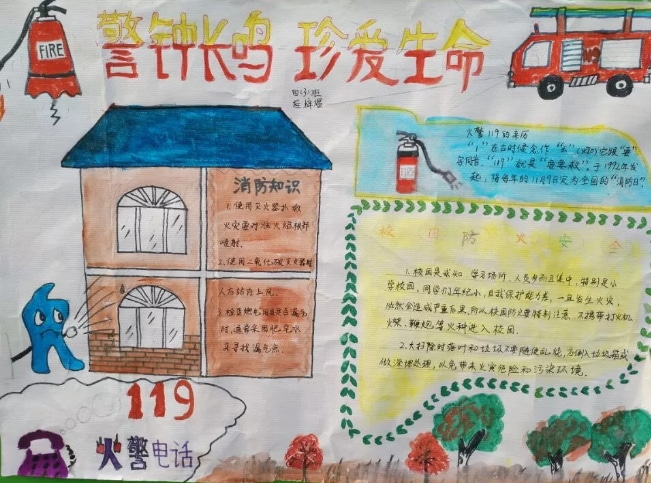 FIRE
警钟长鸣 珍爱生命
消防知识
1.使用灭火器扑救
火灾要对准火焰根部
喷射.
2.使用二氧化碳灭火器时
人在站在上风.
时,通常采用肥皂水
来寻找漏气点.
119
火警电话
火警119的来历
"1"在古时候念作"幺"
"119"就是"要要救".于1992年发
起,将每年的11月9日定为全国的"消防日".
校园防火安全
1.校园是求知 学习场所,人员多而且集中,特别是小
学校园,同学们年纪小,自我保护能力差,一旦发生火灾,
必然会造成严重后果,所以校园防火要特别注意,不携带打火机,
火柴、鞭炮等火种进入校园.
2.大扫除时落叶和垃圾不要随便乱烧,应倒入垃圾箱或
做深埋处理,以免带来火灾危险和污染环境.